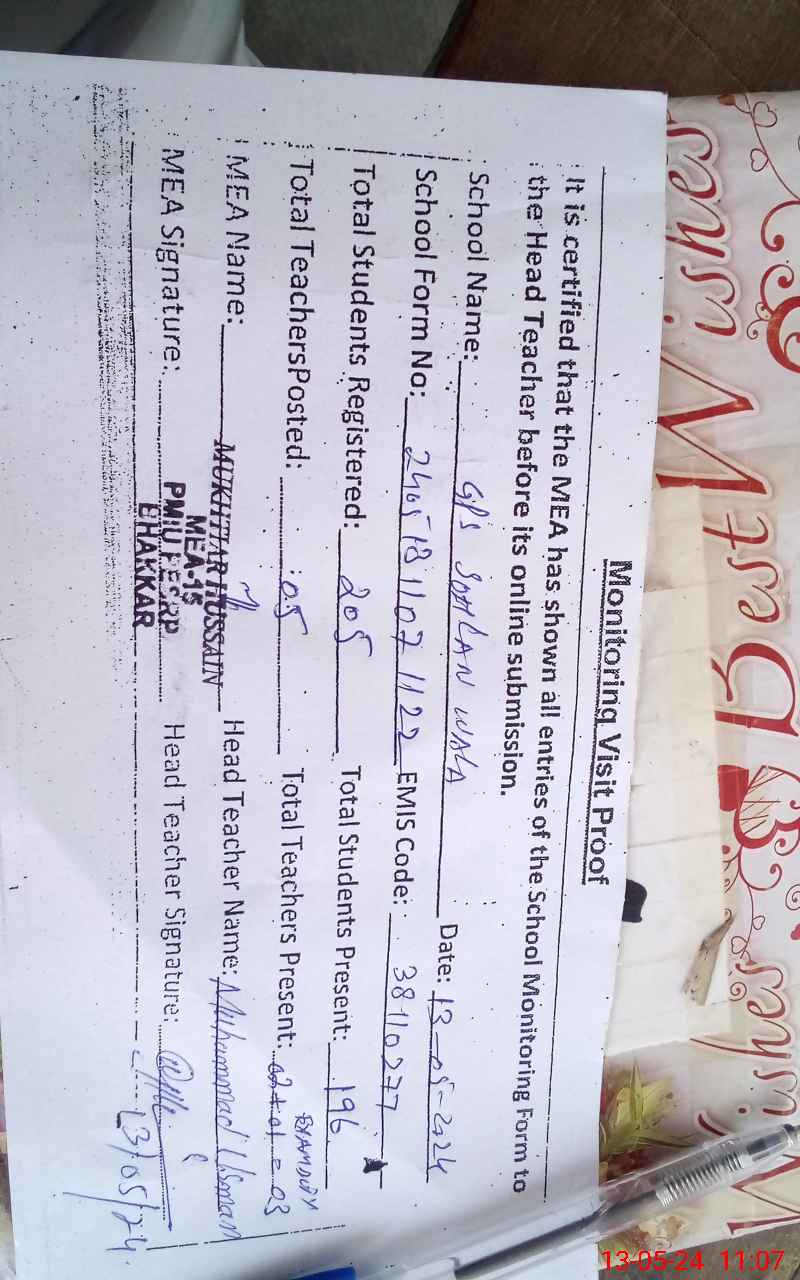 Monitoring Visit Proof
It is certified that the MEA has shown all entries of the School Monitoring Form to
the Head Teacher before its online submission.
School Name: GPS WALA Date: 13-05-2024
School Form No: EMIS Code: 38110277
Total Students Registered: 205 Total Students Present: 196
Total TeachersPosted: 05 Total Teachers Present: 02+01=03
MEA Name: MUKHTIAR HUSSAIN Head Teacher Name: Muhammad Usman
MEA-15
MEA Signature: PMIU PESRP Head Teacher Signature:
BHAKKAR
13/05/24
13-05-24 11:07